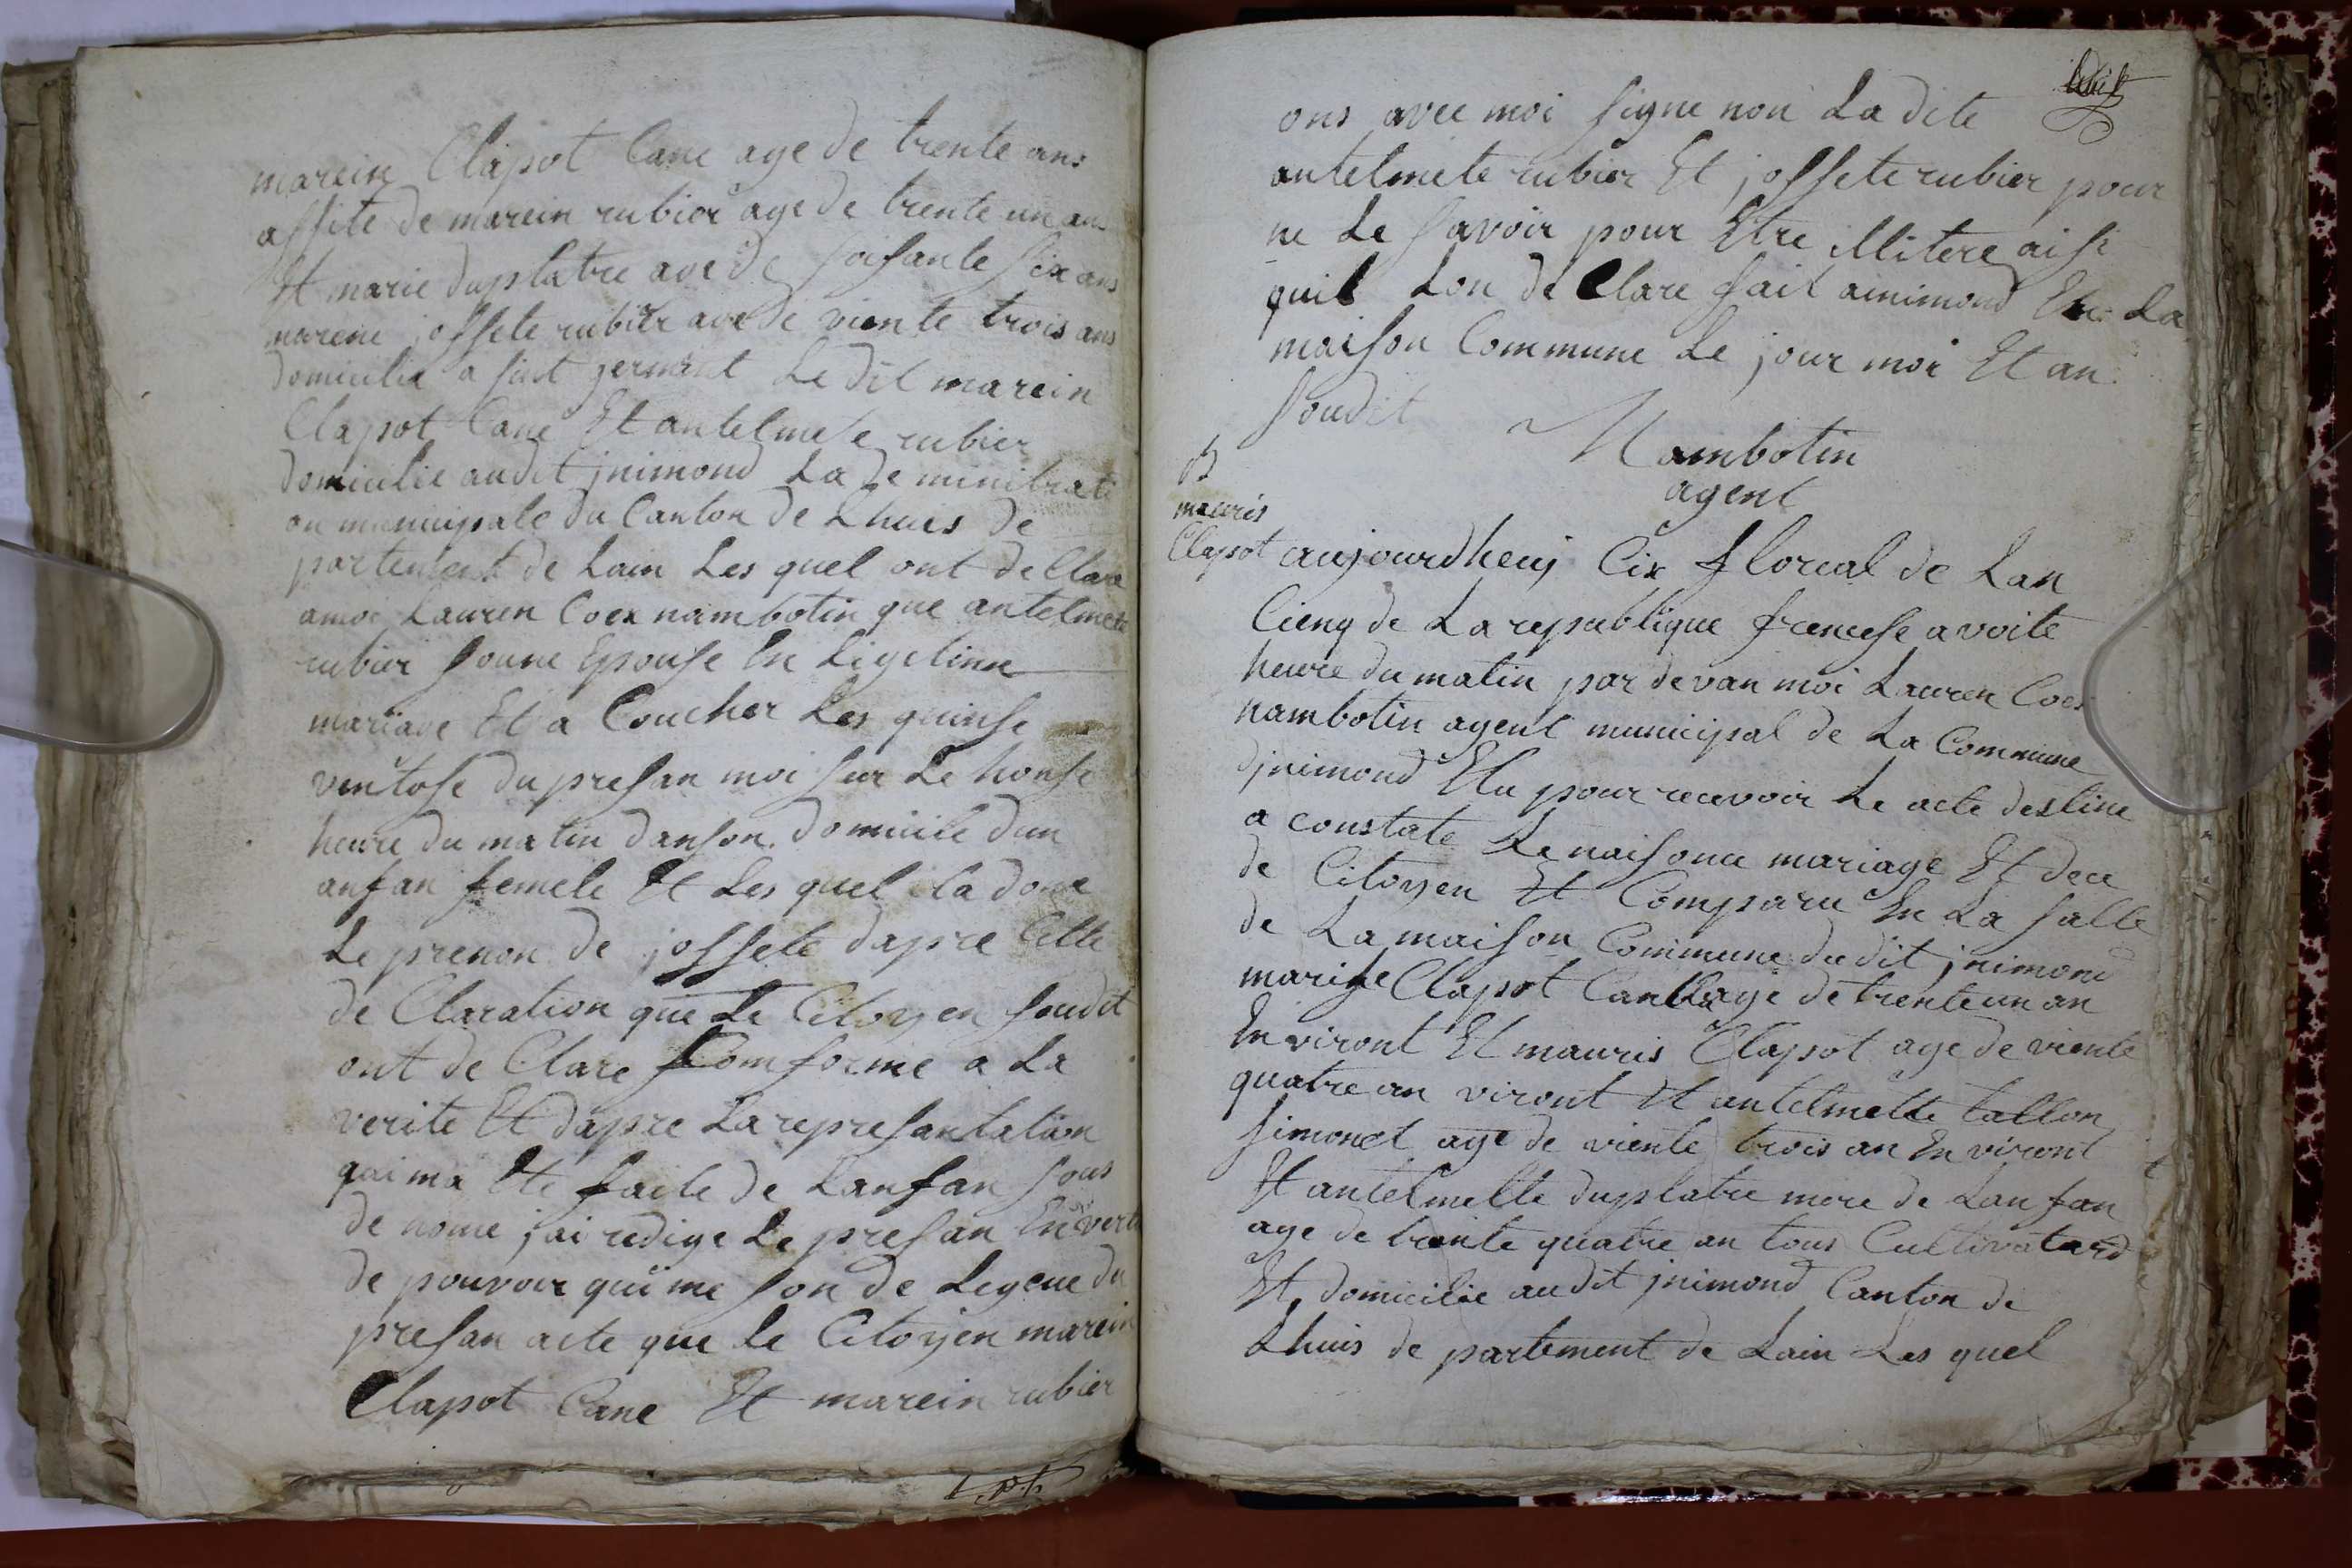 marein Clapot Cane age de trente ans
assite de marein rubier age de trente un an
Et marie duplatre ave de soisante six ans
mareine josSete rubier ave de viente trois ans
domicilie a sint germint Le dit marein
Clapot Cane Et antelmete rubier
domicilie au dit jnimond La de minitrati
on municipale du Canton de Lhuis de
partement de Lain Les quel ont de Clare
amoi Lauren Coex nambotin que antelmete
rubier soune Epouse En Ligetinne
mariave Et a Coucher Les quinse
ventose du presan moi sur Le honse
heure du matin danson domicile dun
anfan femele Et Les quel ila done
Le prenon de josSete dapre Cette
de Claration que Le Citoyen soudit
ont de Clare Comforme a La
verite Et dapre La represantation
qui ma Ete faite de Lanfan sous
de nome jai redige Le presan En vertu
de pouvoir qui me son de Legeue du
presan acte que Le Citoyen marein
Clapot Cane Et marein rubier
ons avec moi signe non La dite
antelmete rubier Et josSete rubier pour
ne Le savoir pour Etre illitere aisi
quil Lon de Clare fait aninimond En La
maison Commune Le jour moi Et an
soudit
Nambotin
agent
mauris
Clapot
aujourdheuj Cix floreal de Lan
Cienq de La republique francese a voite
heure du matin par devan moi Lauren Coex
nambotin agent municipal de La Commune
djnimond Elu pour recevoir Le acte destine
a constate Le naisonce mariage Et dece
de Citoyen Et Comparu En La salle
de La maison Commune du dit jnimond
marise Clapot Canlla age de trente un an
En viront Et mauris Clapot age de viente
quatre an viront Et antelmette tallon
simonet age de viente trois an En viront
Et antelmette duplatre mere de Lan fan
age de trente quatre an tous Cultivatard
Et domicilie au dit jnimond Canton de
Lhuis de partement de Lain Les quel